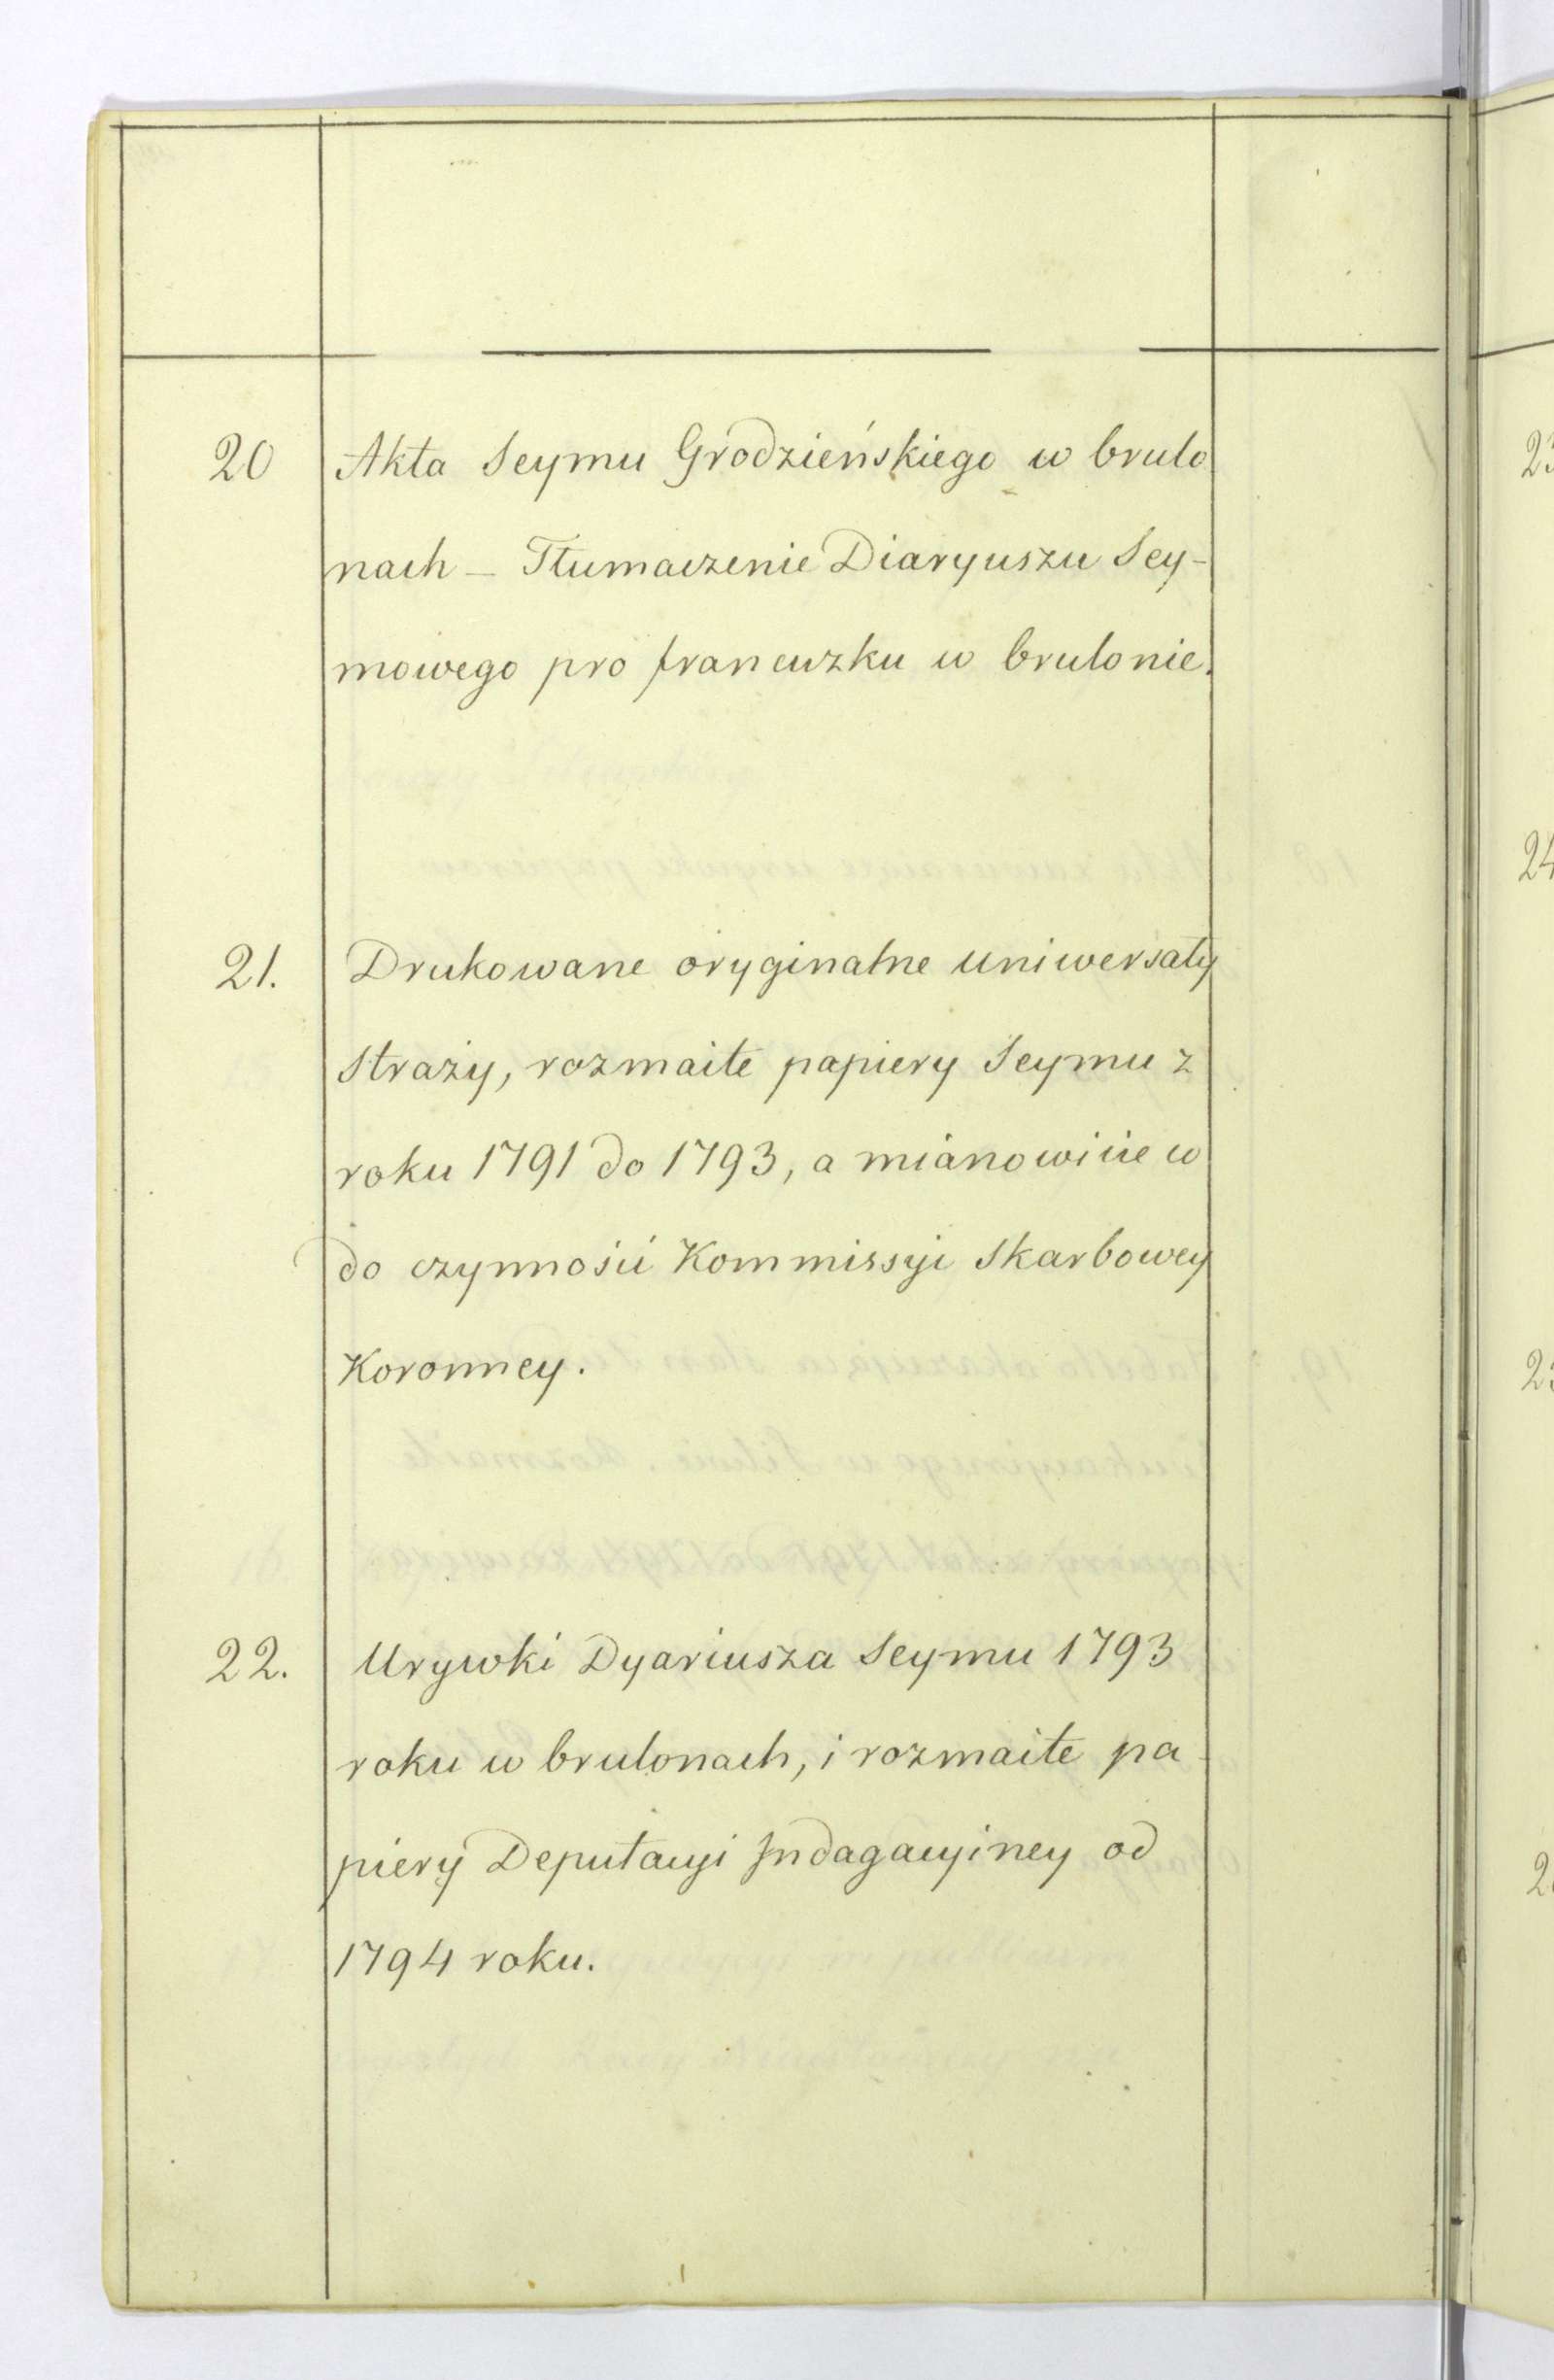 20 Akta Seymu Grodzieńskiego w brulo
nach – Tłumaczenie Diaryuszu Sey-
mowego pro francuzku w brulonie.
21. Drukowane oryginalne uniwersały
Straży, rozmaite papiery Seymu z
roku 1791 do 1793, a mianowicie w
do czynności Kommissyi Skarbowey
Koronney.
22. Urywki Dyariusza Seymu 1793
roku w brulonach, i rozmaite pa-
piery Deputacyi Indagacyiney od
1794 roku.
24